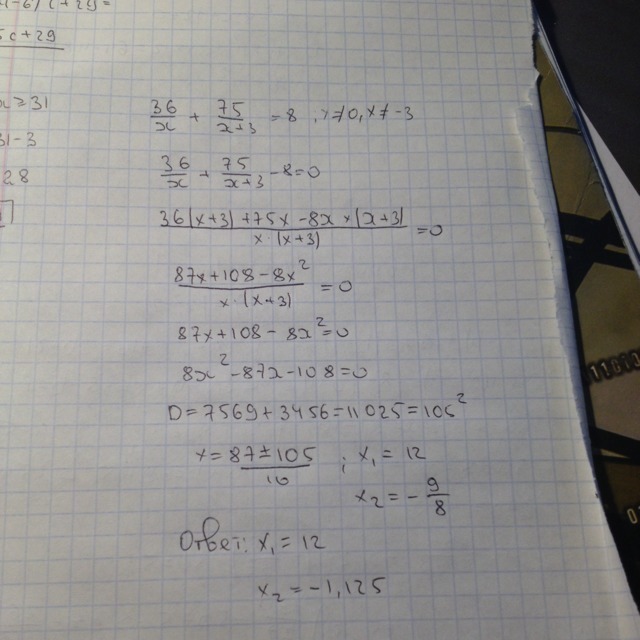 5c+29
x≥31
31-3
28
36/x + 75/(x+3) = 8, x≠0, x≠-3
36/x + 75/(x+3) - 8=0
(36(x+3)+75x-8x×(x+3))/(x·(x+3)) =0
(87x+108-8x²)/(x·(x+3)) =0
87x+108-8x²=0
8x²-87x-108=0
D=7569+3456=11025=105²
x=(87±105)/16 ; x₁=12
x₂=-9/8
Ответ: x₁=12
x₂=-1,125